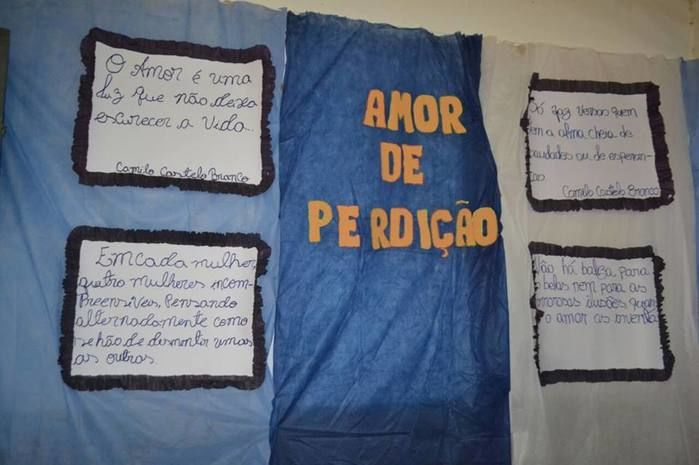 O Amor é uma
luz que não deixa
escurecer a vida.
Camilo Castelo Branco
Em cada mulher,
quatro mulheres incom-
preensíveis, pensando
alternadamente como
se hão de desmentir umas
as outras.
AMOR
DE
PERDIÇÃO
Só faz versos quem
tem a alma cheia de
saudades ou de esperan-
ças
Camilo Castelo Branco
Não há baliza para
belas nem para as
amorosas ilusões, quan
o amor as inventa